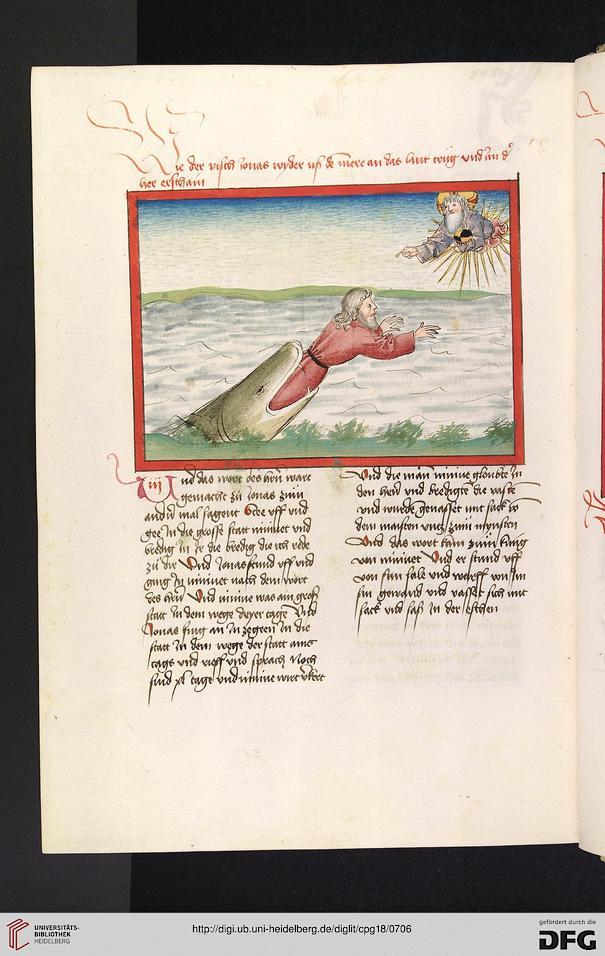 Wie der visch Jonas wyder uß de mere an das lant trüg und im der
her erscham
iii Und das wort des herrn wart
gemacht zü Jonas züm
andern mal sagent Stee uff und
gee In die grosse statt ninive und
bredig In Ir die bredig die ich rede
zü dir Und Jonas stund uff und
ging In ninive nach dem wort
des herrn Und ninive was ain groß
statt In dem wege dryer tage Und
Jonas fing an In zegeen In die
statt In dem wege der statt ains
tags und rieff und sprach Noch
sind xl tage und ninive wirt
Und die man ninive gloubte In
den herrn und bredigte die vaste
und wurde mit sack
dem maisten untz züm mynsten
Und das wort kam züm kung
von ninive Und er stund uff
von sim sale und warff von Im
sin gewand und vasset sich mit
sack und saß In der eschen
UNIVERSITÄTS-
BIBLIOTHEK
HEIDELBERG
http://digi.ub.uni-heidelberg.de/diglit/cpg18/0706
gefördert durch die
DFG